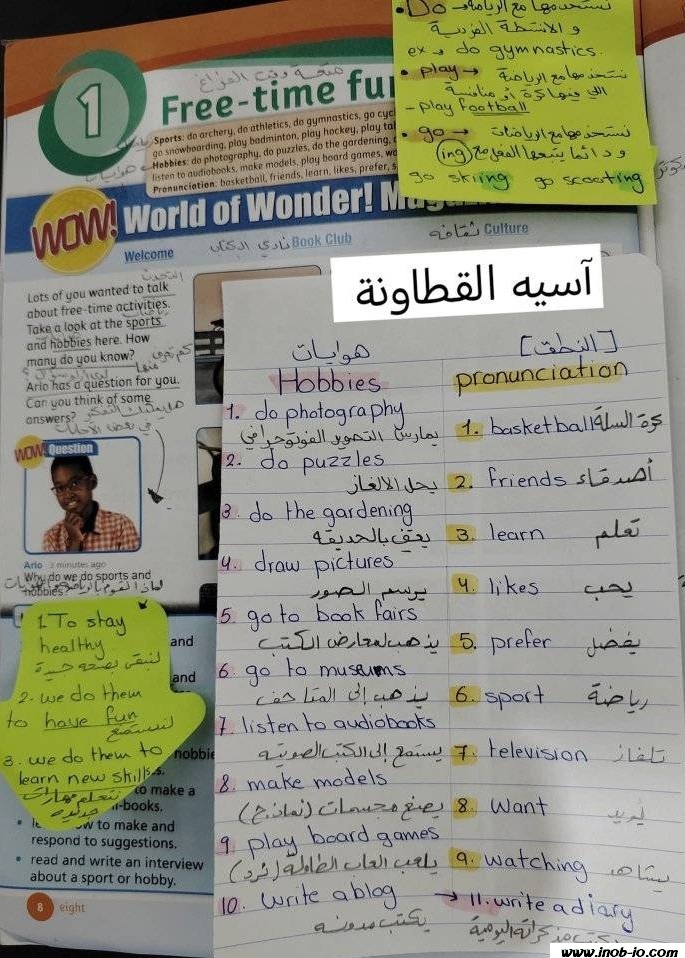 • Do → نستخدمها مع الرياضة
و الانشطة الفردية
ex → do gymnastics.
• play → نستخدمها مع الرياضة
الي فيها كرة أو منافسة
- play football
• go → نستخدمها مع الرياضات
و دائما يتبعها الفعل مع (ing)
go skiing go scooting
متعة وقت الفراغ
1
Free-time fu
Sports: do archery, do athletics, do gymnastics, go cyc
go snowboarding, play badminton, play hockey, play ta
Hobbies: do photography, do puzzles, do the gardening,
listen to audiobooks, make models, play board games, w
Pronunciation: basketball, friends, learn, likes, prefer, s
هوايات
WOW! World of Wonder! M
Welcome
نادي الكتاب Book Club
ثقافة Culture
التحدث
Lots of you wanted to talk
about free-time activities.
Take a look at the sports
and hobbies here. How
many do you know?
Arlo has a question for you.
Can you think of some
answers?
هل يمكنك التفكير
في بعض الأجابات
WOW! Question
Arlo 3 minutes ago
Why do we do sports and
hobbies?
1. To stay
healthy
لنبقى بصحه جيدة
2. we do them
to have fun
لنستمتع
3. we do them to
learn new skills.
نتعلم مهارات
جديده
and
and
hobbie
s.
to make a
-books.
w to make and
respond to suggestions.
• read and write an interview
about a sport or hobby.
8 eight
آسيه القطاونة
هوايات
Hobbies
1. do photography
يمارس التصوير الفوتوجرافي
2. do puzzles
يحل الالغاز
3. do the gardening
يعتني بالحديقه
4. draw pictures
يرسم الصور
5. go to book fairs
يذهب لمعارض الكتب
6. go to museums
يذهب إلى المتاحف
7. listen to audiobooks
يستمع إلى الكتب الصوتيه
8. make models
يصنع مجسمات (نماذج)
9. play board games
يلعب العاب الطاولة (نرد)
10. write a blog
يكتب مدونه
[النطق]
pronunciation
1. basketball كرة السلة
2. friends أصدقاء
3. learn تعلم
4. likes يحب
5. prefer يفضل
6. sport رياضة
7. television تلفاز
8. want يريد
9. watching يشاهد
→ 11. write a diary
يكتب مذكراته اليومية
www.inob-jo.com